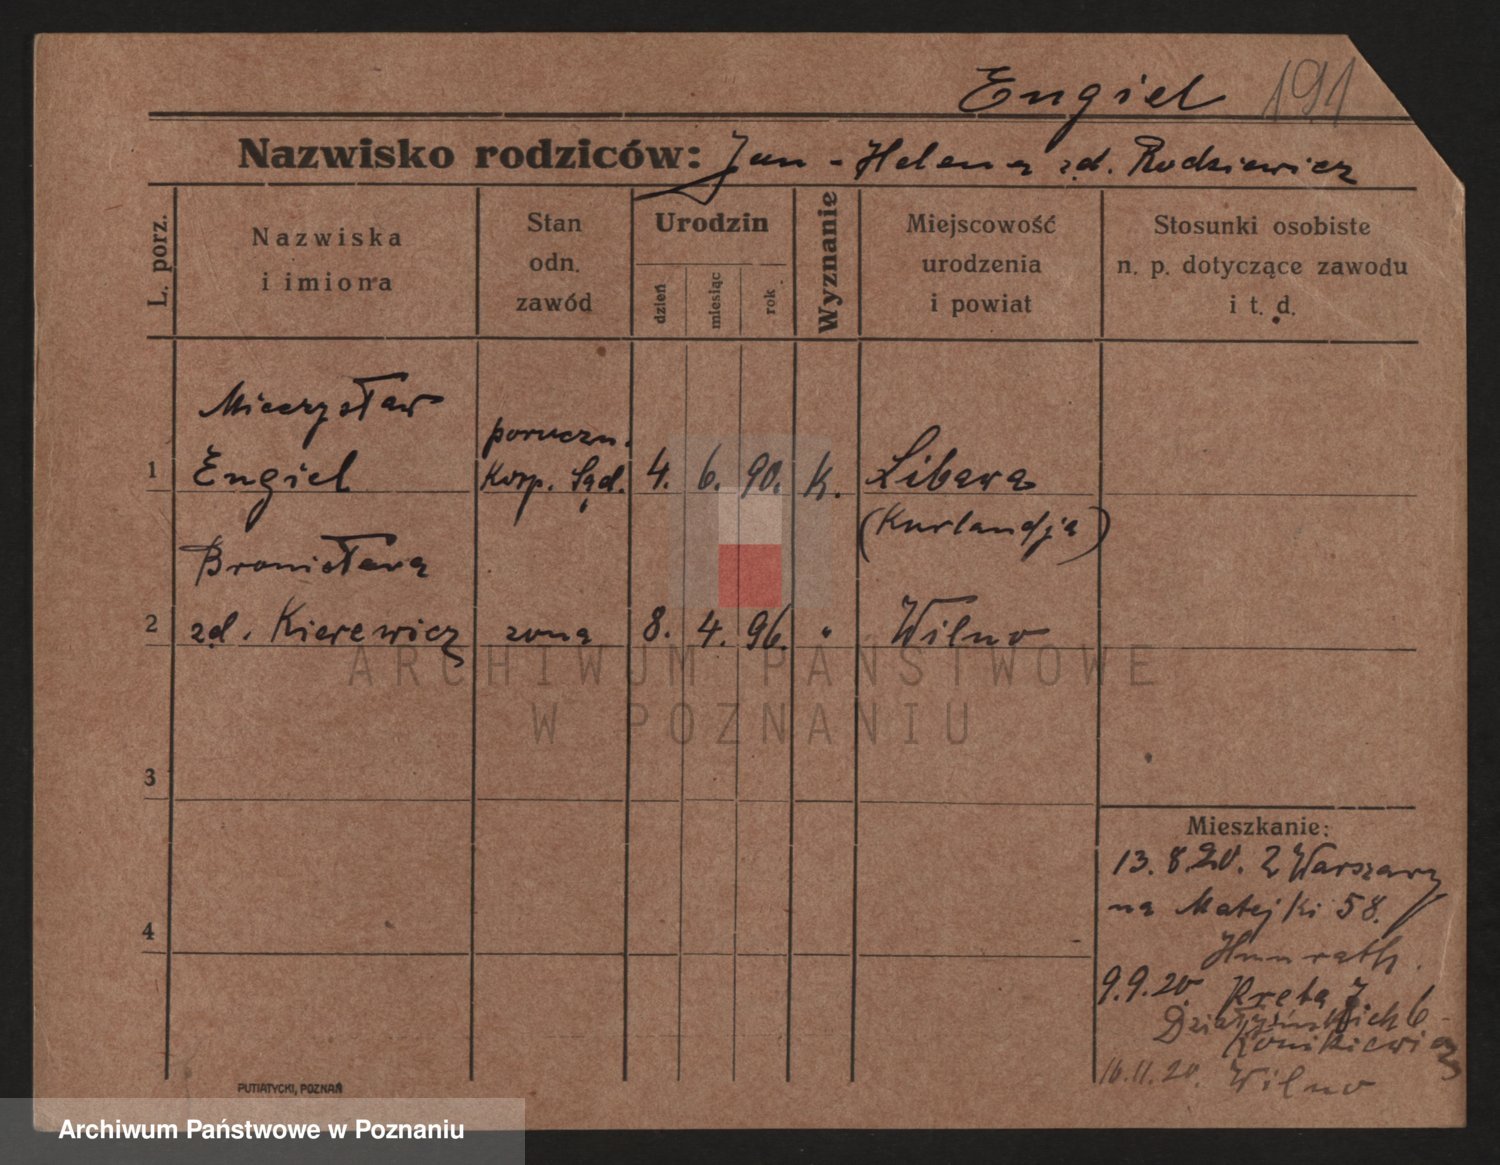 Engiel 191
Nazwisko rodziców: Jan - Helena zd. Rodziewicz
L. porz.
Nazwiska
i imiona
Stan
odn.
zawód
Urodzin
dzień
miesiąc
rok
Wyznanie
Miejscowość
urodzenia
i powiat
Stosunki osobiste
n. p. dotyczące zawodu
i t. d.
Mieczysław
1 Engiel
poruczn.
Korp. Sąd. 4. 6. 90. K. Libawa
(Kurlandja)
Bronisława
2 zd. Kierewicz żona 8. 4. 96. " Wilno
3
4
Mieszkanie:
13. 8 20. Z Warszawy
na Matejki 58.
9.9.20 Kręta 7.
Działyńskich 6
16.11.20. Wilno
PUTIATYCKI, POZNAŃ
ARCHIWUM PAŃSTWOWE
W POZNANIU
Archiwum Państwowe w Poznaniu